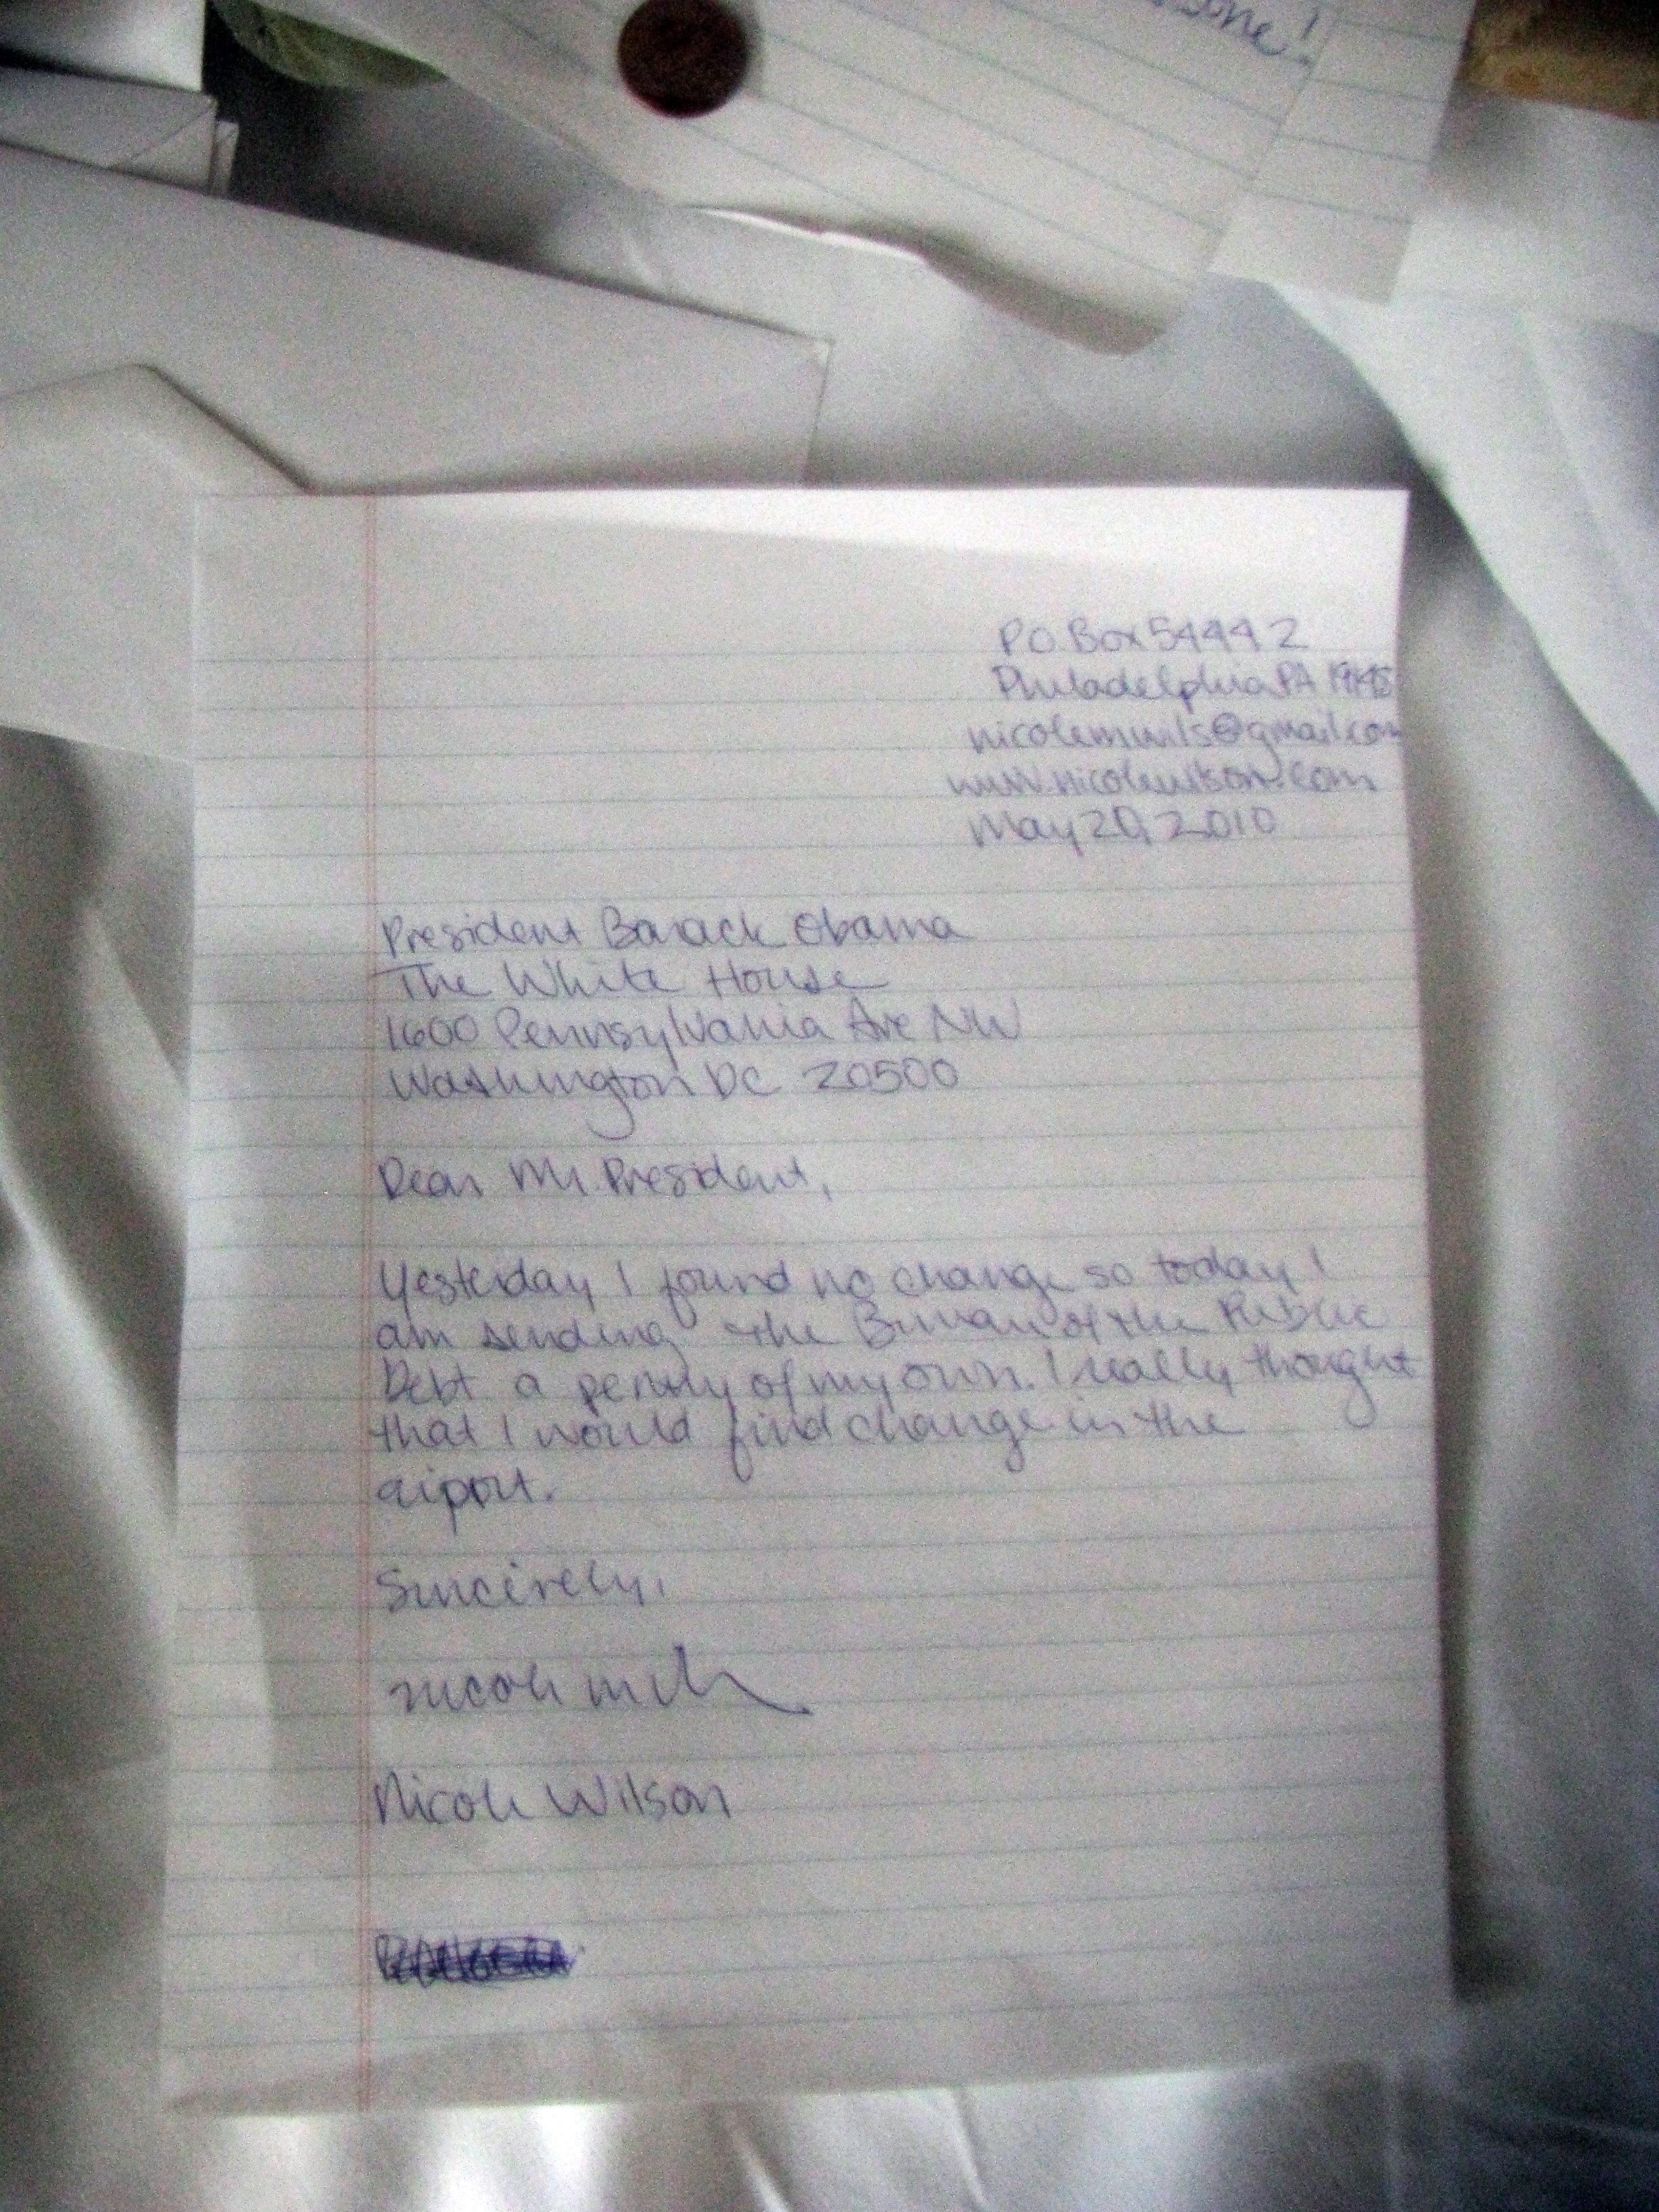 one!
PO Box 54442
Philadelphia PA 19148
nicolemwils@gmail.com
www.nicolewilson.com
May 20, 2010
President Barack Obama
The White House
1600 Pennsylvania Ave NW
Washington DC 20500
Dear Mr. President,
Yesterday I found no change so today I
am sending the Bureau of the Public
Debt a penny of my own. I really thought
that I would find change in the
aiport.
Sincerely,
Nicole Wilson